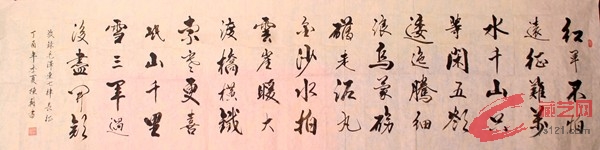 红军不怕
远征难万
水千山只
等闲五岭
逶迤腾细
浪乌蒙磅
礴走泥丸
金沙水拍
云崖暖大
渡桥横铁
索寒更喜
岷山千里
雪三军过
后尽开颜
敬录毛泽东七律长征
丁酉年
艺网
s121.com